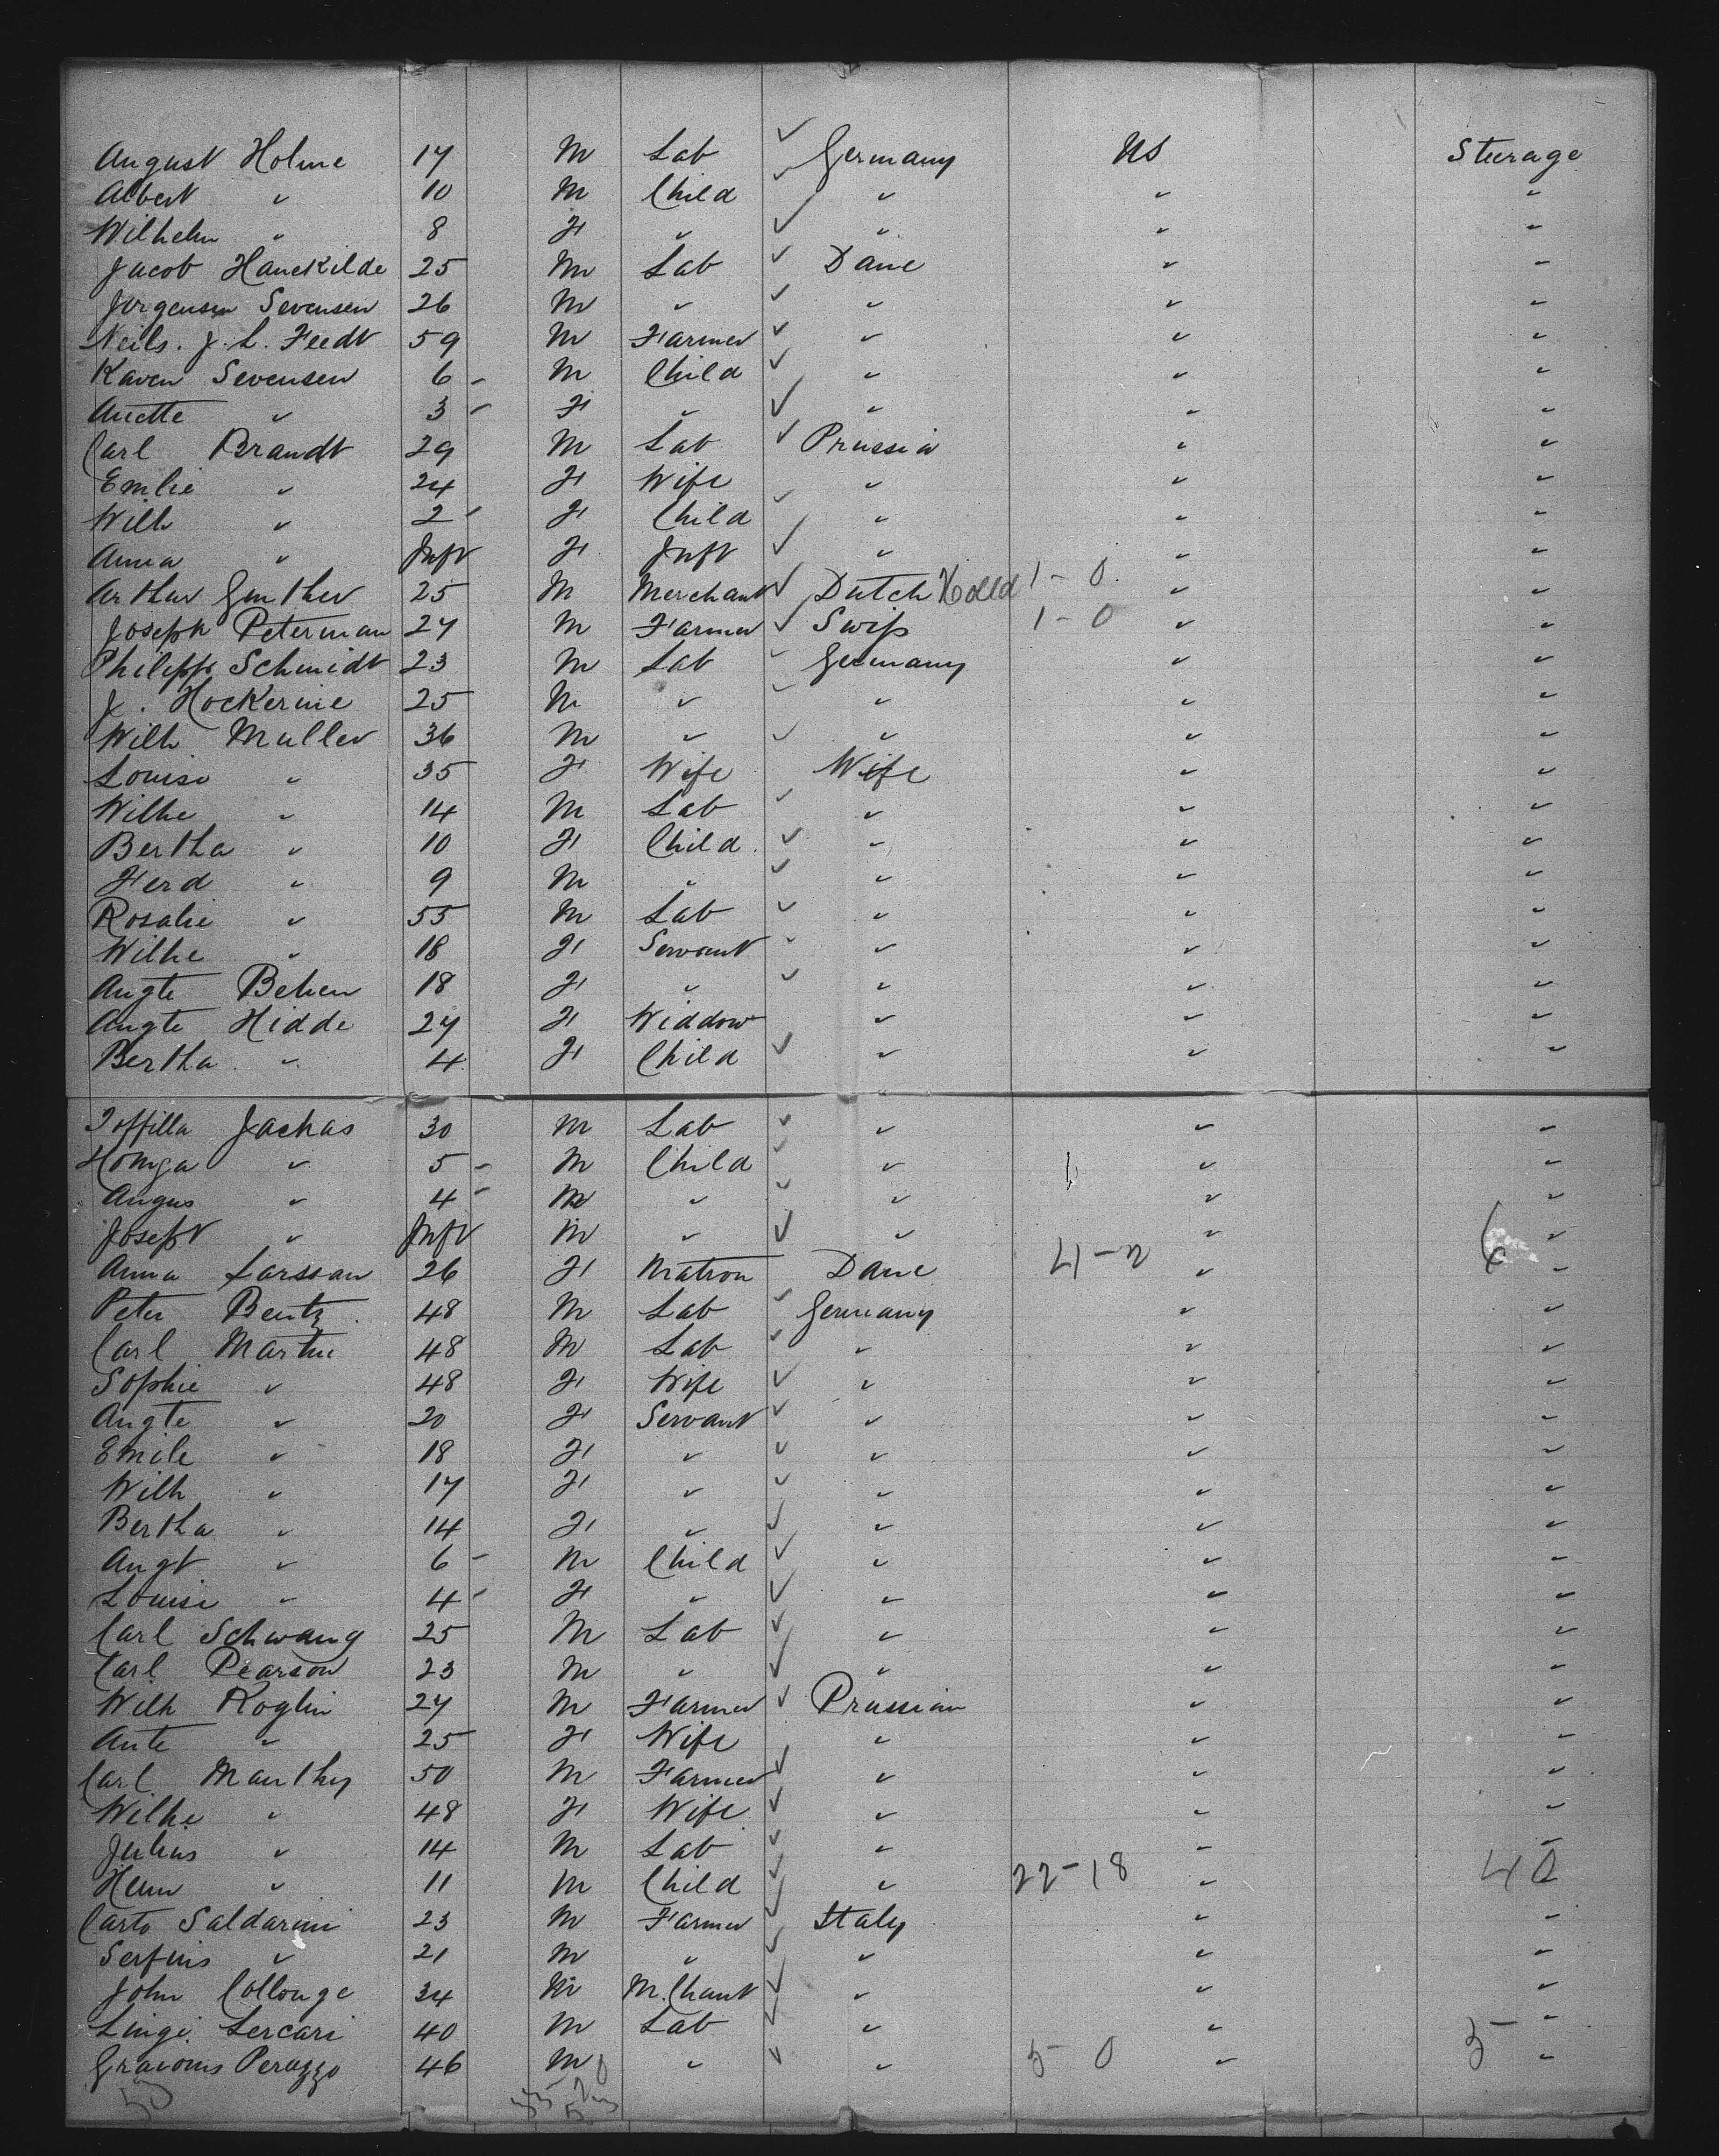 August Holme 17 M Lab ✓ Germany US Steerage
Albert " 10 M Child ✓ " " "
Wilhelm " 8 F " ✓ " " "
Jacob Hauckilde 25 M Lab ✓ Dane " "
Jorgensen Sevensen 26 M " ✓ " " "
Neils. J. L. Feedt 59 M Farmer ✓ " " "
Karen Sevensen 6 - M Child ✓ " " "
Anette " 3 - F " ✓ " " "
Carl Brandt 29 M Lab ✓ Prussia " "
Emlie " 24 F Wife " " "
Wilh " 2 - F Child ✓ " " "
Anna " Inft F Inft ✓ " " "
Arthur Gunther 25 M Merchant ✓ Dutch Holld 1 - 0 " "
Joseph Peterman 27 M Farmer ✓ Swiss 1 - 0 " "
Philipp Schmidt 23 M Lab ✓ Germany " "
J. Hockerine 25 M " ✓ " " "
Wilh Muller 36 M " ✓ " " "
Louise " 35 F Wife Wife " "
Wilhe " 14 M Lab ✓ " " "
Bertha " 10 F Child ✓ " " "
Ferd " 9 M " ✓ " " "
Rosalie " 55 M Lab ✓ " " "
Wilhe " 18 F Servant ✓ " " "
Augte Behen 18 F " ✓ " " "
Augte Hidde 27 F Widdow " " "
Bertha " 4 F Child ✓ " " "
Jachas 30 M Lab ✓ " " "
Honga " 5 - M Child ✓ " " "
Angus " 4 - M " ✓ " " "
Joseph " Inft M " ✓ " " "
Anna Larssan 26 F Matron Dane " 6 "
Peter Bentz 48 M Lab ✓ Germany " "
Carl Martin 48 M Lab ✓ " " "
Sophie " 48 F Wife ✓ " " "
Augte " 20 F Servant ✓ " " "
Emile " 18 F " ✓ " " "
Wilh " 17 F " ✓ " " "
Bertha " 14 F " ✓ " " "
Augt " 6 - M Child ✓ " " "
Louise " 4 - F " ✓ " " "
Carl Schwang 25 M Lab ✓ " " "
Carl Pearson 23 M " ✓ " " "
Wilh Roglin 27 M Farmer ✓ Prussian " "
Aute " 25 F Wife " " "
Carl Manthy 50 M Farmer ✓ " " "
Wilhe " 48 F Wife ✓ " " "
Julius " 14 M Lab ✓ " " "
Herm " 11 M Child ✓ " 22-18 " 40
Carto Saldarini 23 M Farmer ✓ Italy " "
Serfins " 21 M " ✓ " " "
John Collonge 34 M M.Chant ✓ " " "
Luigi Lercari 40 M Lab ✓ " " "
Peruzzo 46 M " ✓ " 5 - 0 " 5 "